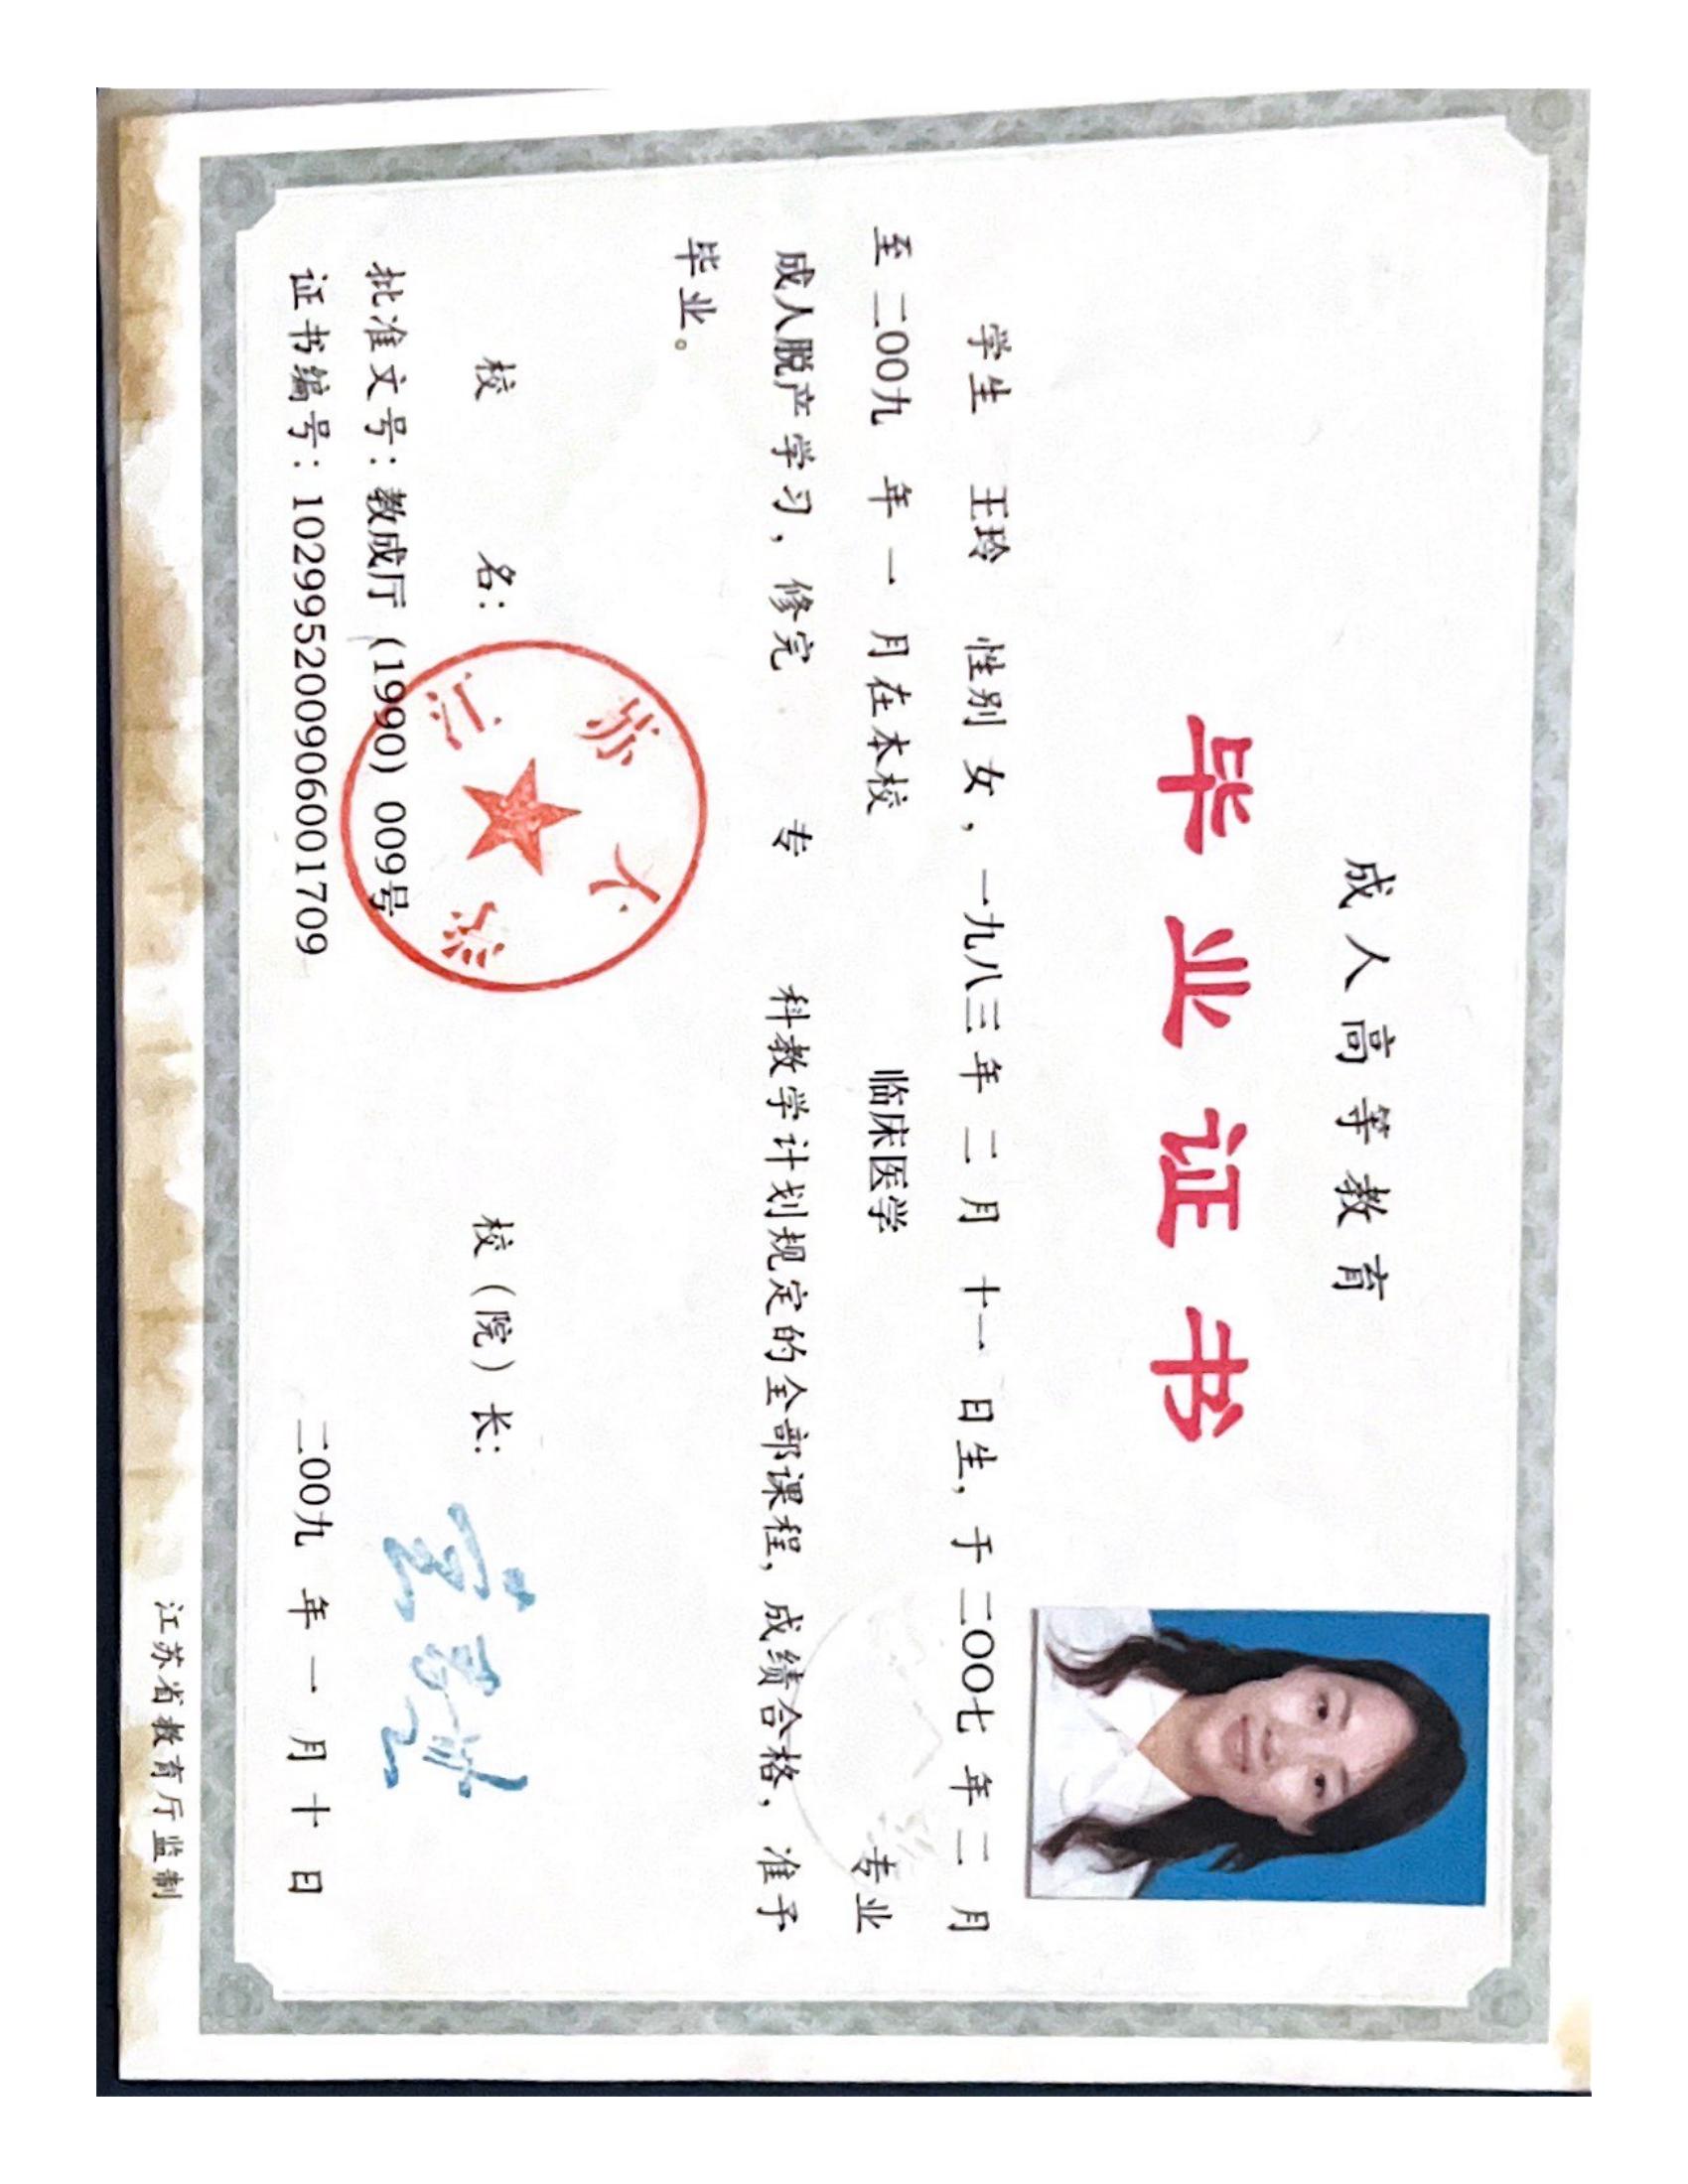 成人高等教育
毕业证书
学生 王玲 性别 女，一九八三年 二 月 十一 日生，于 二〇〇七 年 二 月
至 二〇〇九 年 一 月在本校 临床医学 专业
成人脱产学习，修完 专 科教学计划规定的全部课程，成绩合格，准予
毕业。
校 名： 校（院）长：
江苏大学
批准文号：教成厅（1990）009号
证书编号：102995200906001709 二〇〇九 年 一 月 十 日
江苏省教育厅监制